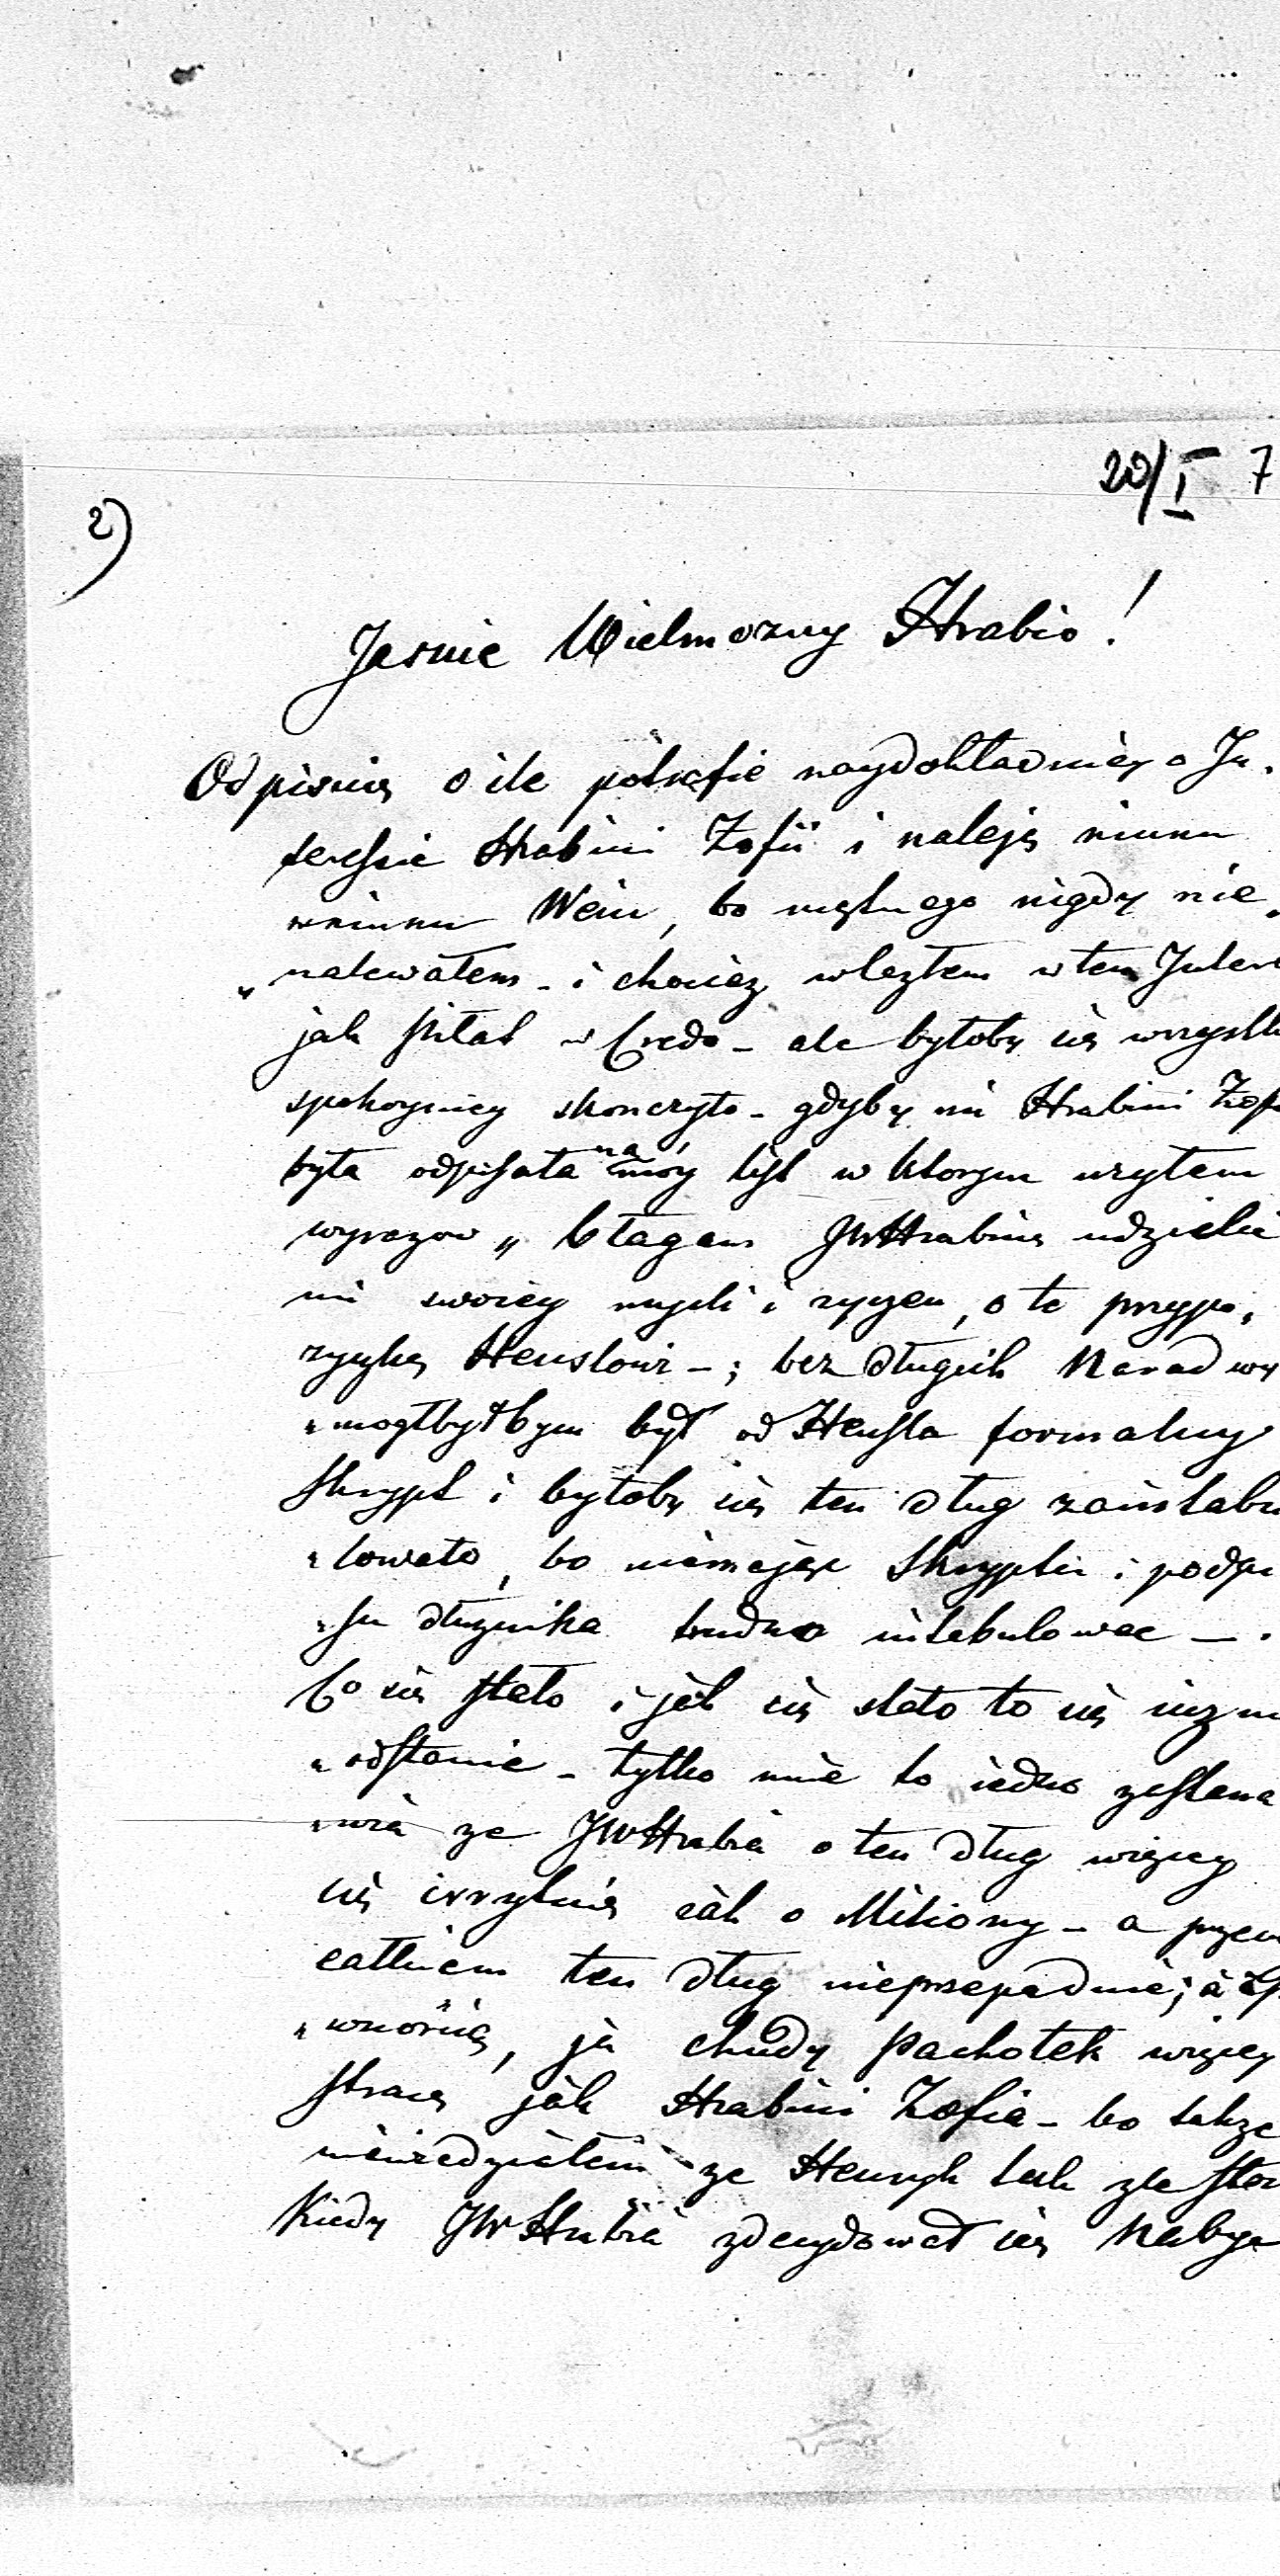 20/I 7
2)
Jasnie Wielmozny Hrabio!
Odpisuię o ile potrafie naydokładniey o In„
teressie Hrabini Zofii i naleję
Wein, bo mętnego nigdy nie„
„nalewałem - i chociez wlezłem w ten Intere
jak Piłat w Credo - ale byłoby się wszystk
spokoyniey skonczyło - gdyby mi Hrabini Zofi
była odpisała na móy list w ktorym uzyłem
wyrazow „ błagam JWHrabinę udzielić
mi swoiey mysli i zyczen, o te przypo„
Henslowi - ; bez długich Narad wy
„mogłbyłbym był od Hensla formalny
Skrypt i byłoby się ten dług zaintabu
„lowało, bo niemając Skryptu i podpi
„su dłuznika trudno intabulowac - .
Co się stało i jak się stało to się iuz ni
„odstanie - tylko mnie to iedno zastana
„wia ze JWHrabia o ten dług więcey
się irrytuię iak o Miliony - a przeci
eatkiem ten dług nieprzepadnie; a
„wnoscią, ja chudy Pachołek więcey
stracę jak Hrabini Zofia - bo takze
niewiedziałem ze Henryk tak zle stoi
Kiedy JWHrabia zdecydował się Nabyc